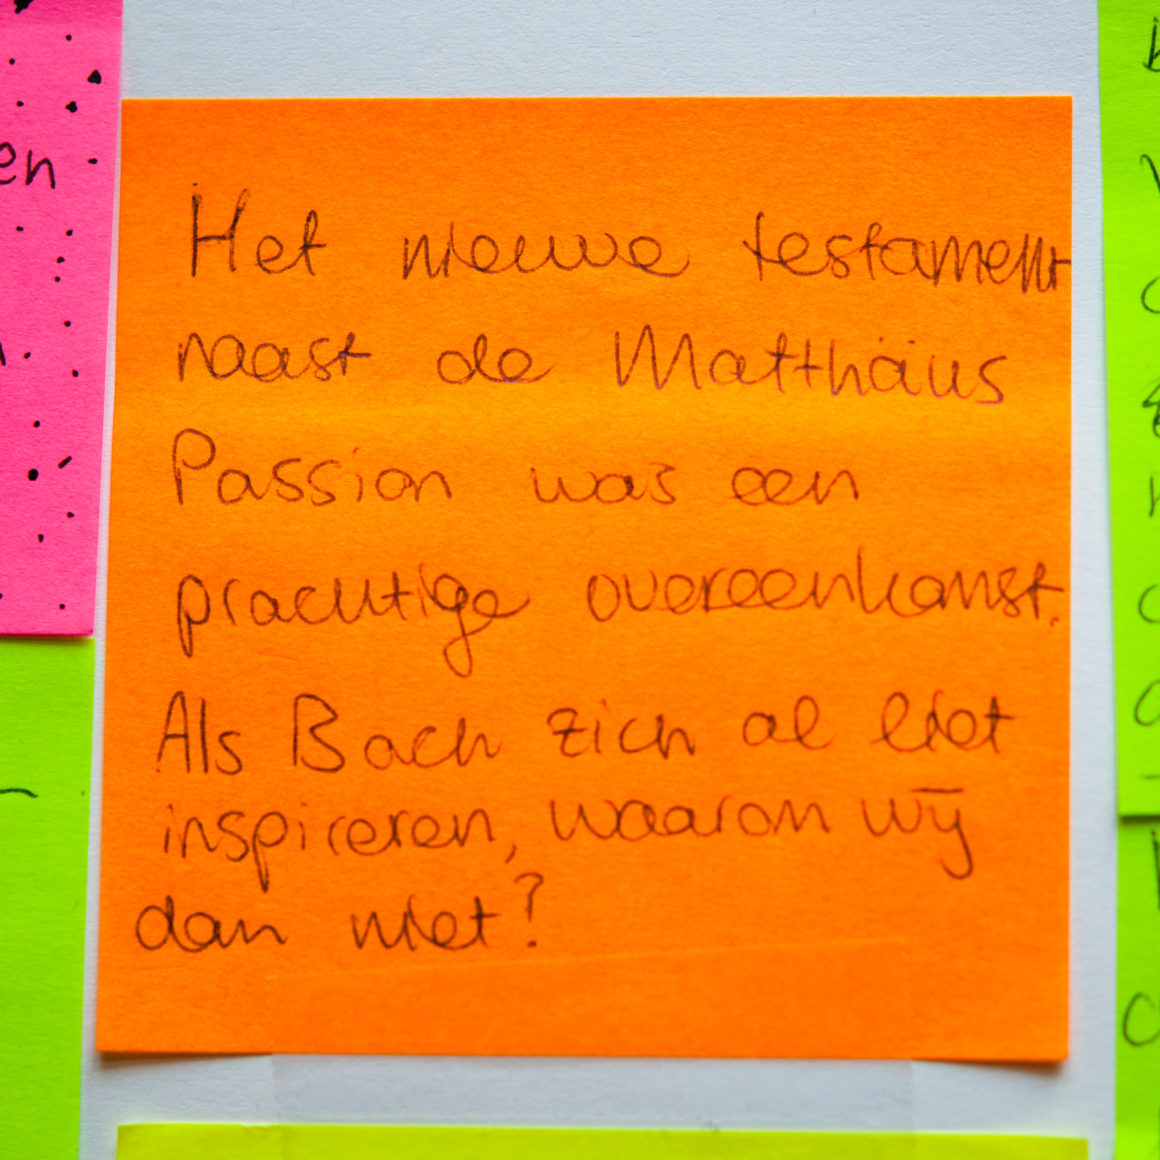 en
Het nieuwe testament
naast de Matthäus
Passion was een
prachtige overeenkomst.
Als Bach zich al liet
inspireren, waarom wij
dan niet?